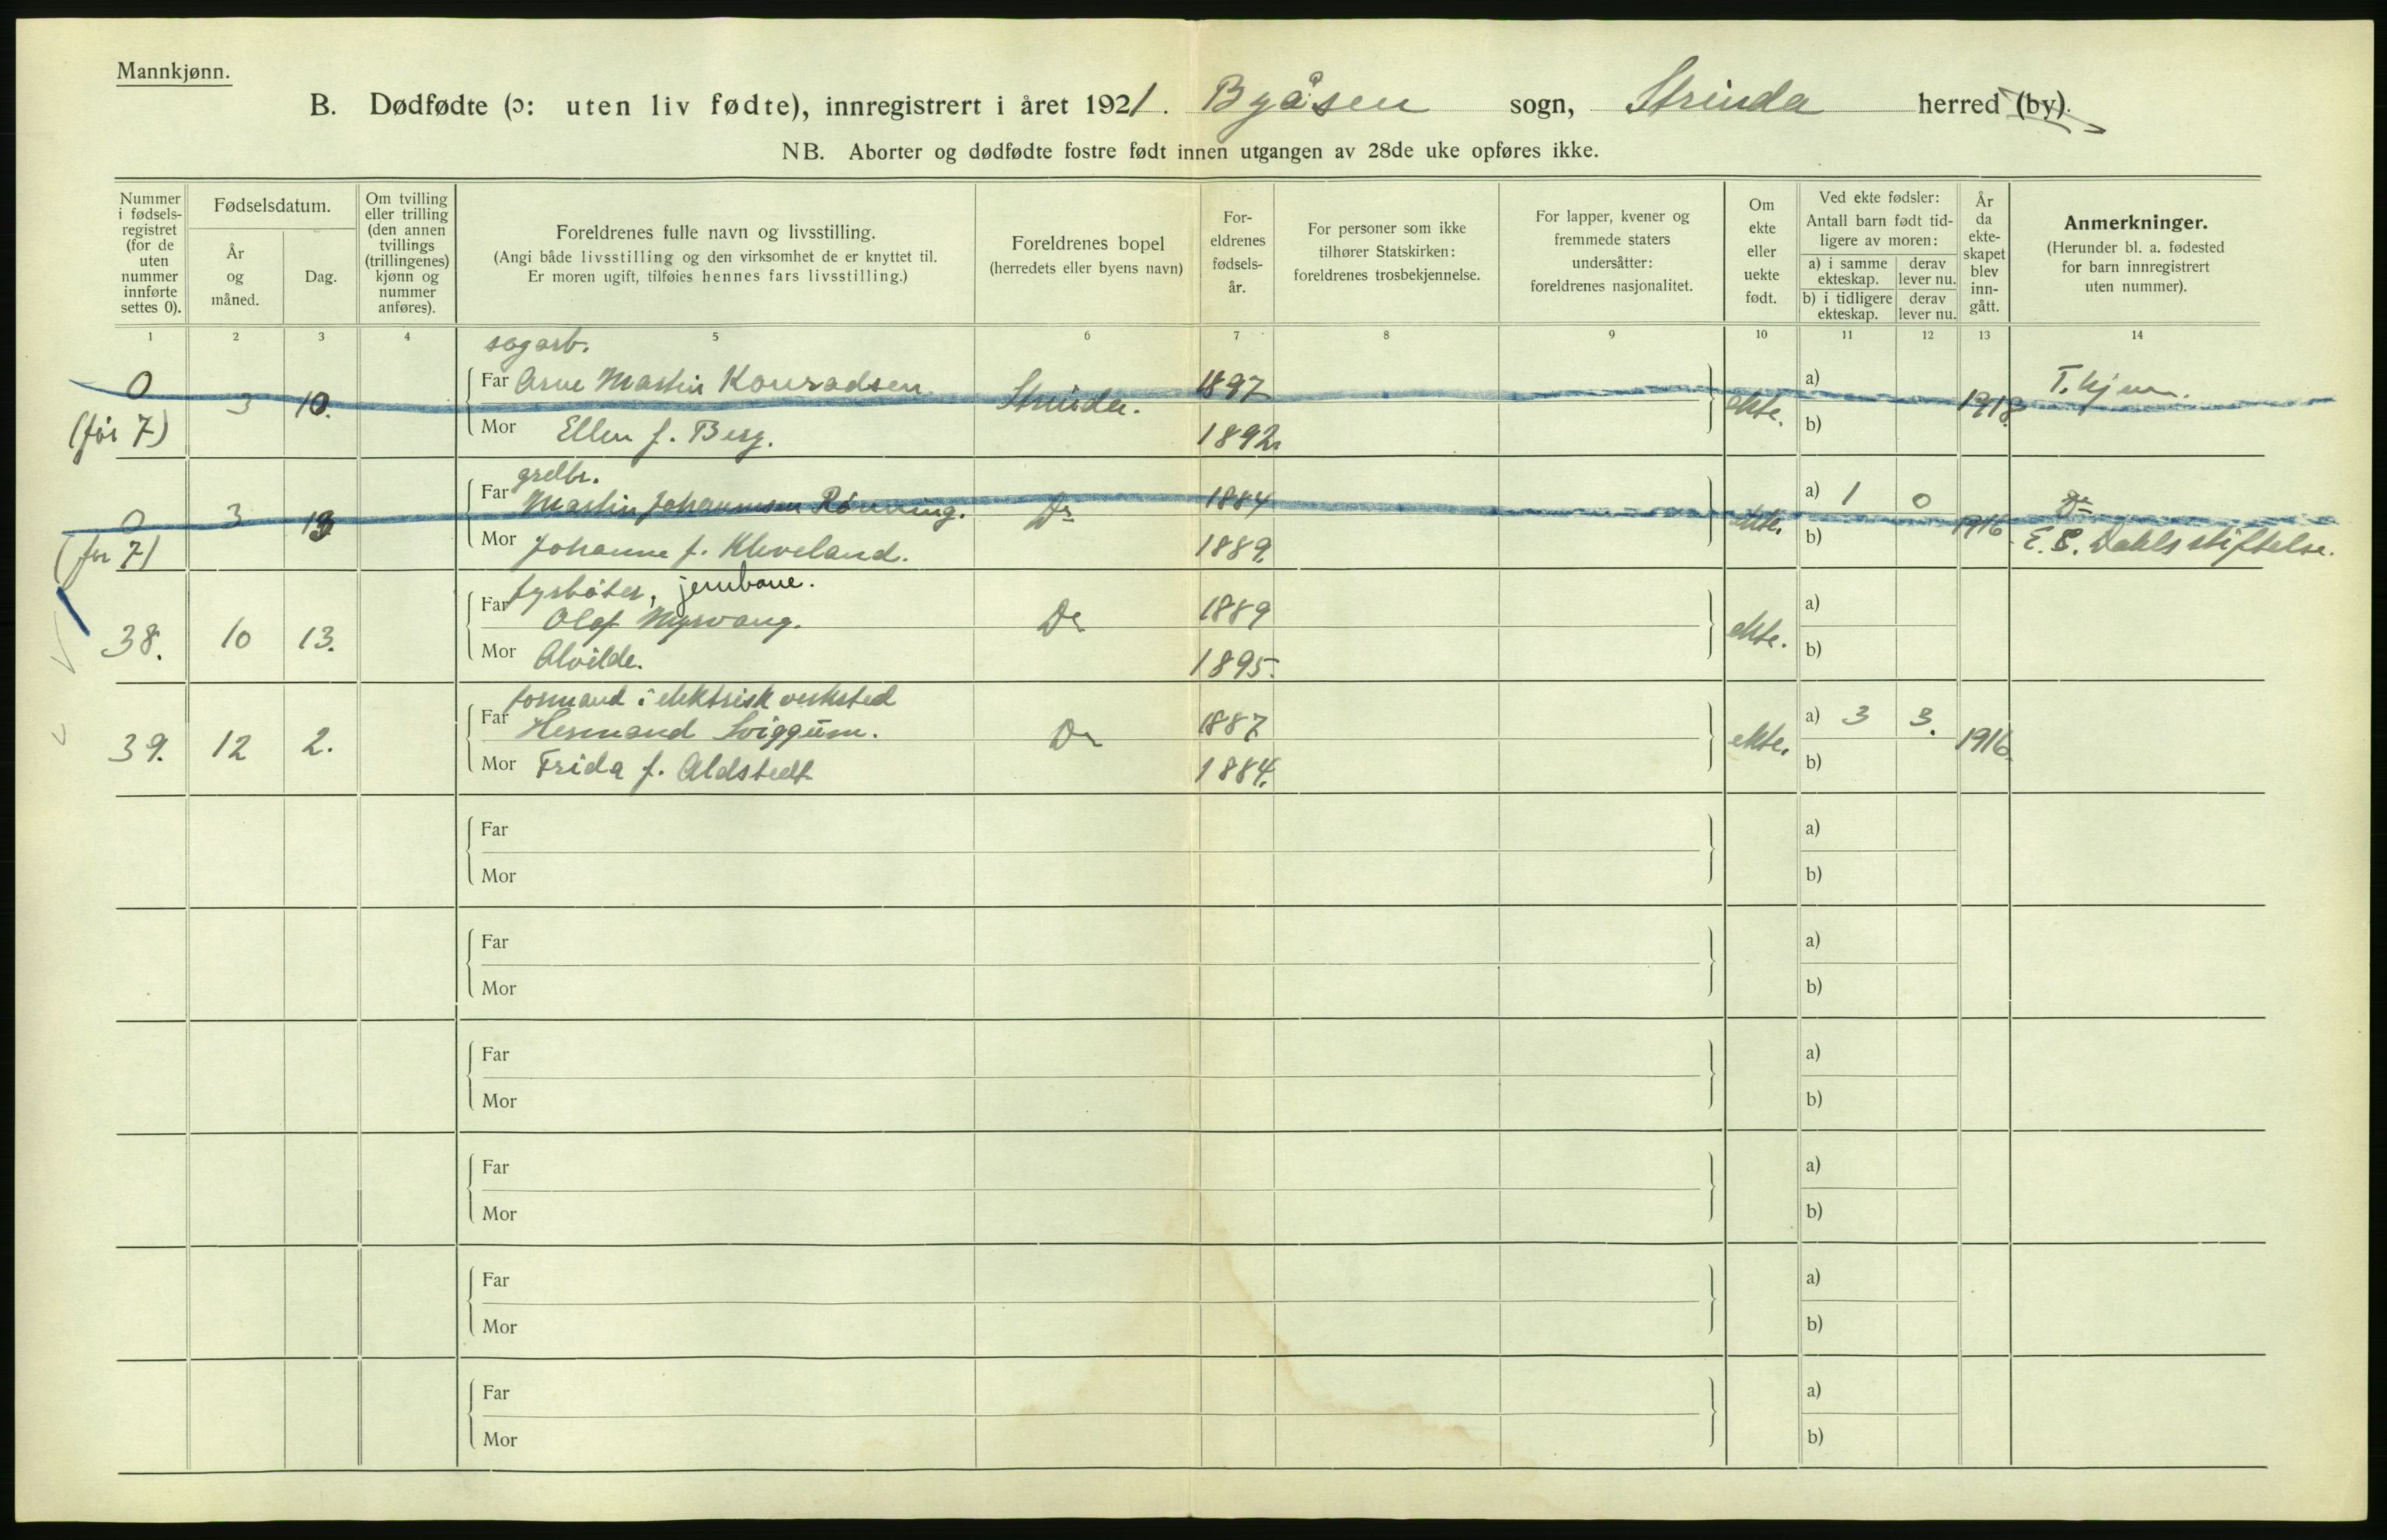 Mannkjønn.
B. Dødfødte (ɔ: uten liv fødte), innregistrert i året 1921. Byåsen sogn, Strinda herred (by).
NB. Aborter og dødfødte fostre født innen utgangen av 28de uke opføres ikke.
Nummer i fødselsregistret (for de uten nummer innførte settes 0).
Fødselsdatum.
År og måned.
Dag.
Om tvilling eller trilling (den annen tvillings (trillingenes) kjønn og nummer anføres).
Foreldrenes fulle navn og livsstilling.
(Angi både livsstilling og den virksomhet de er knyttet til.
Er moren ugift, tilføies hennes fars livsstilling.)
Foreldrenes bopel
(herredets eller byens navn)
Foreldrenes fødselsår.
For personer som ikke tilhører Statskirken: foreldrenes trosbekjennelse.
For lapper, kvener og fremmede staters undersåtter: foreldrenes nasjonalitet.
Om ekte eller uekte født.
Ved ekte fødsler:
Antall barn født tidligere av moren:
a) i samme ekteskap. derav lever nu.
b) i tidligere ekteskap. derav lever nu.
År da ekteskapet blev inngått.
Anmerkninger.
(Herunder bl. a. fødested for barn innregistrert uten nummer).
1 2 3 4 5 6 7 8 9 10 11 12 13 14
sagarb.
0 3 10. Far Arne Martin Konradsen Strinda. 1897 ekte. a) 1918. T.hjem.
(før 7) Mor Ellen f. Berg. 1892. b)
0 3 13 Far Martin Johannesen Rønning. Do 1884 ekte. a) 1 0 1916 Do
(før 7) Mor Johanne f. Kleveland. 1889. b) E. C. Dahls stiftelse.
fyrbøter, jernbane.
38. 10 13. Far Olaf Myrvang. Do 1889 ekte. a)
Mor Alvilde. 1895. b)
formand i elektrisk verksted
39. 12 2. Far Hermand Sviggum. Do 1887 ekte. a) 3 3. 1916.
Mor Frida f. Aldstedt 1884. b)
Far a)
Mor b)
Far a)
Mor b)
Far a)
Mor b)
Far a)
Mor b)
Far a)
Mor b)
Far a)
Mor b)